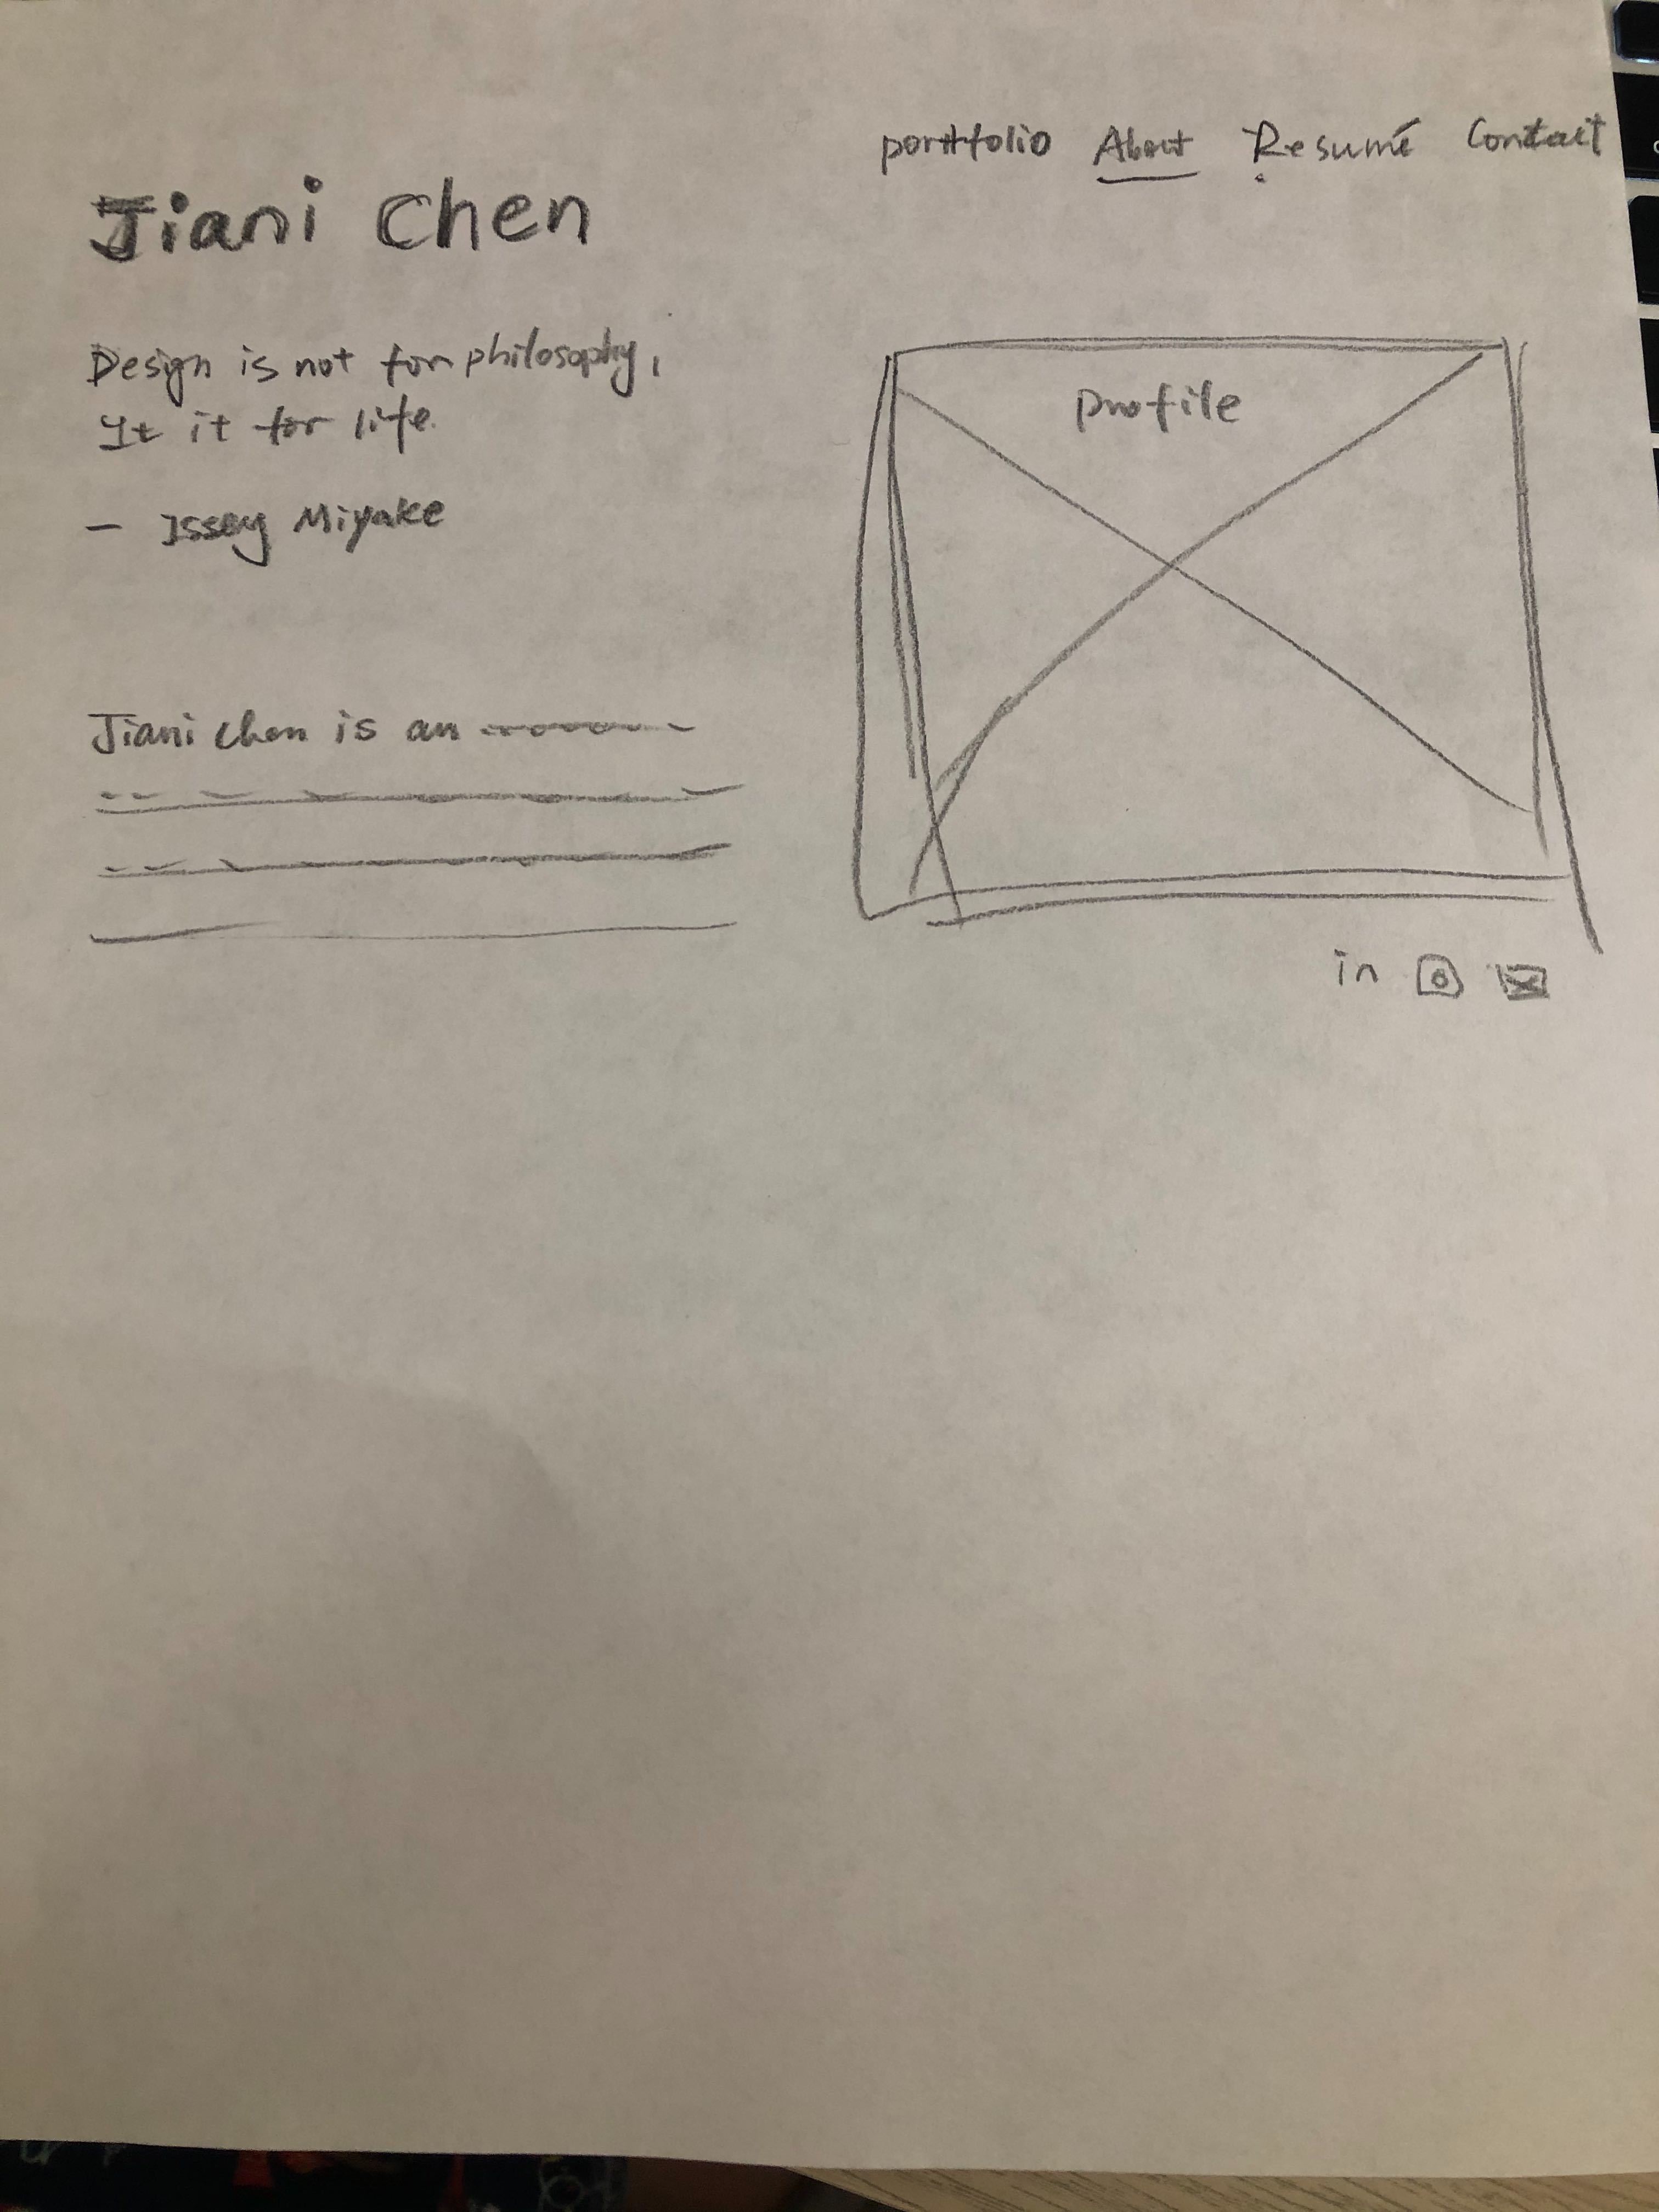 portfolio About Resumé Contact
Jiani Chen
Design is not for philosophy,
It it for life.
- Issey Miyake
Jiani Chen is an
profile
in